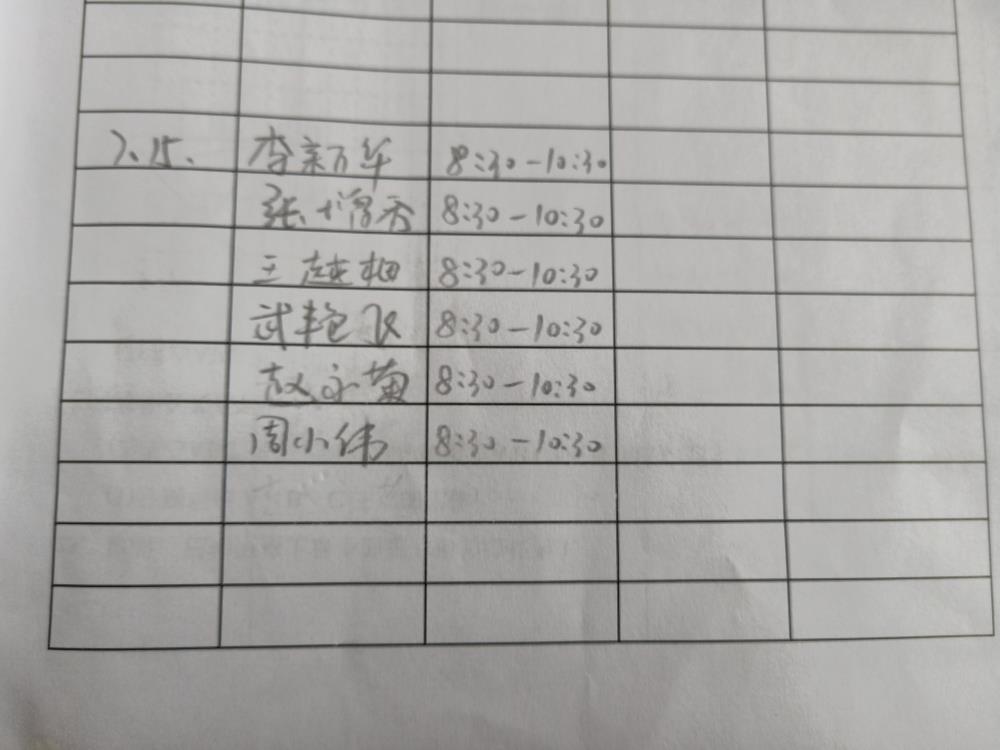 7.15. 李新华 8:30-10:30
张增秀 8:30-10:30
王越 8:30-10:30
武艳飞 8:30-10:30
赵永菊 8:30-10:30
周小伟 8:30-10:30